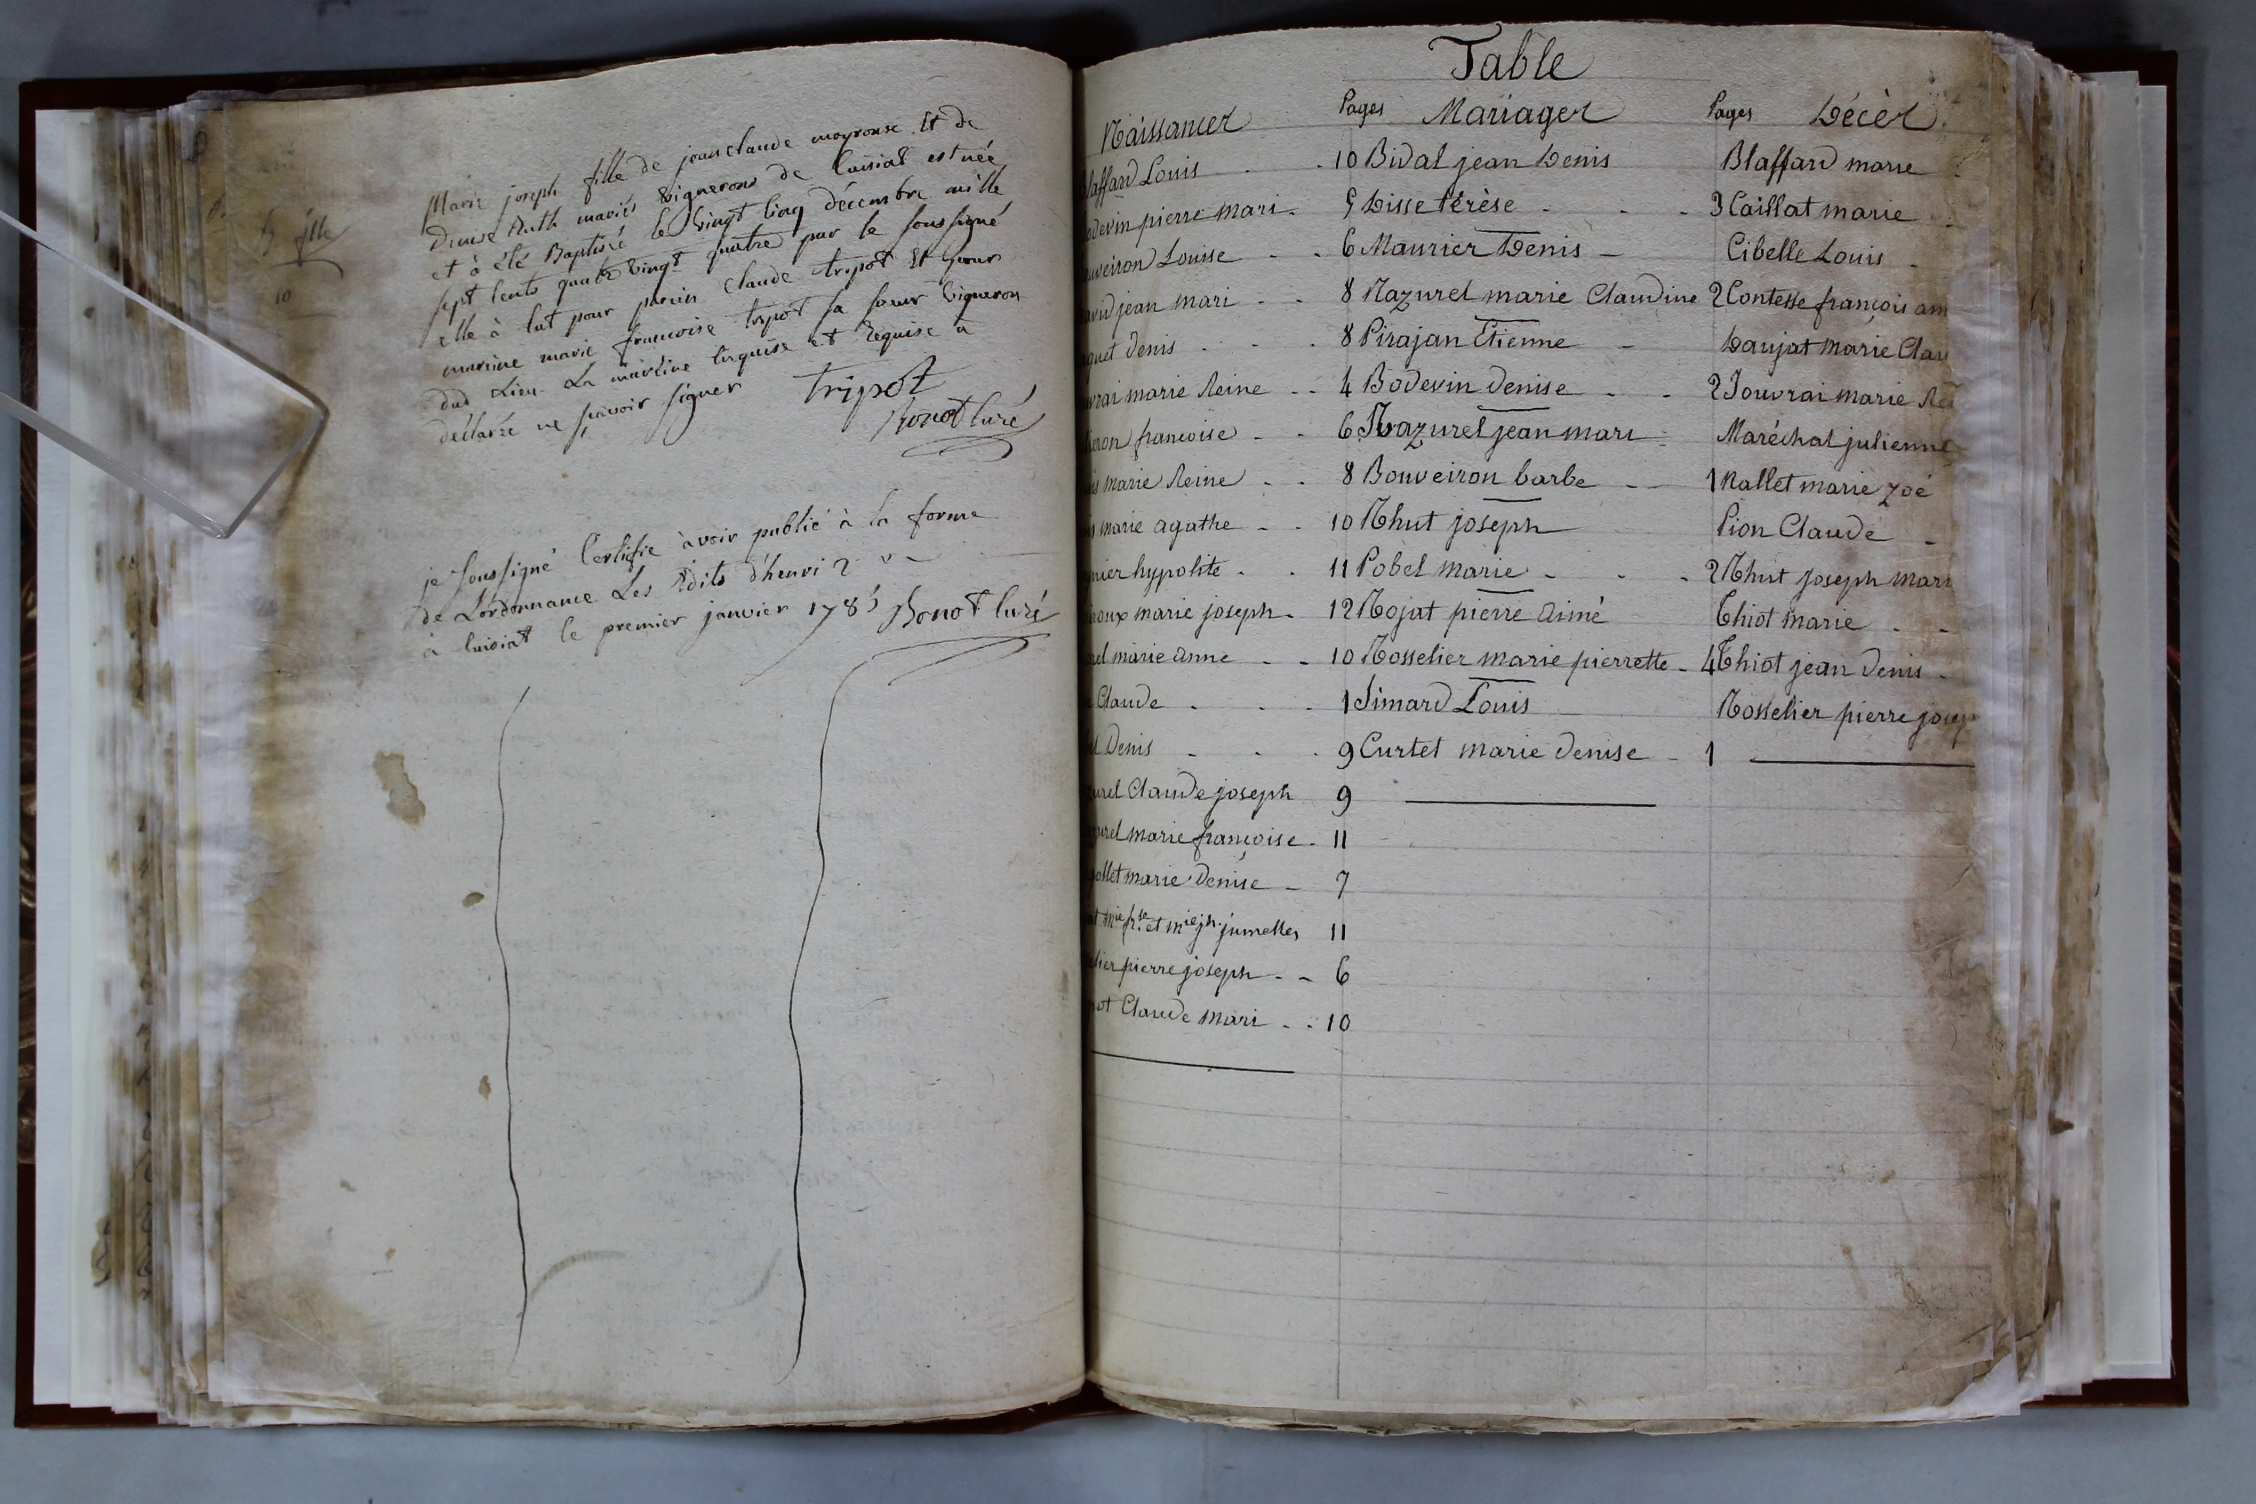 B fille
10
Marie joseph fille de jean claude moyroux Et de
Denise Ruth mariés Vignerons de Cuisiat est née
et à été Baptisé le Vingt Cinq décembre mille
sept Cents quatre Vingt quatre par le soussigné
elle à Eut pour parein Claude tripot Et pour
mareine marie francoise tripot sa sœur Vigneron
dud Lieu La mareine enquise et Requise à
déclaré ne sçavoir signer tripot
Bonot Curé
je soussigné Certifie avoir publié à la forme
de L'ordonnance Les Edits d'henri 2
à Cuisiat le premier janvier 1785 Bonot Curé
Table
Naissances Pages Mariages Pages Décès
laffard Louis 10 Bidal jean Denis Blaffard marie
odevin pierre mari 5 Disse térèse 3 Caillat marie
uveiron Louise 6 Maurier Denis Cibelle Louis
avid jean mari 8 Mazurel marie Claudine 2 Contesse françois am
quet denis 8 Pirajan Etienne Daujat marie Clau
vrai marie Reine 4 Bodevin denise 2 Jouvrai marie Rei
ieron francoise 6 Mazurel jean mari Maréchal julienne
is marie Reine 8 Bouveiron barbe 1 Nallet marie zoé
marie agathe 10 Rhut joseph Pion Claude
nier hypolite 11 Pobel marie 2 Rhut joseph mari
roux marie joseph 12 Rojat pierre Aimé Thiot marie
rel marie Anne 10 Rosselier marie pierrette 4 Thiot jean Denis
Claude 1 Simard Louis Rosselier pierre josep
l Denis 9 Curtet marie denise 1
urel Claude joseph 9
urel marie françoise 11
ollet marie Denise 7
mie frse et mie jh jumelles 11
elier pierre joseph 6
ot Claude mari 10